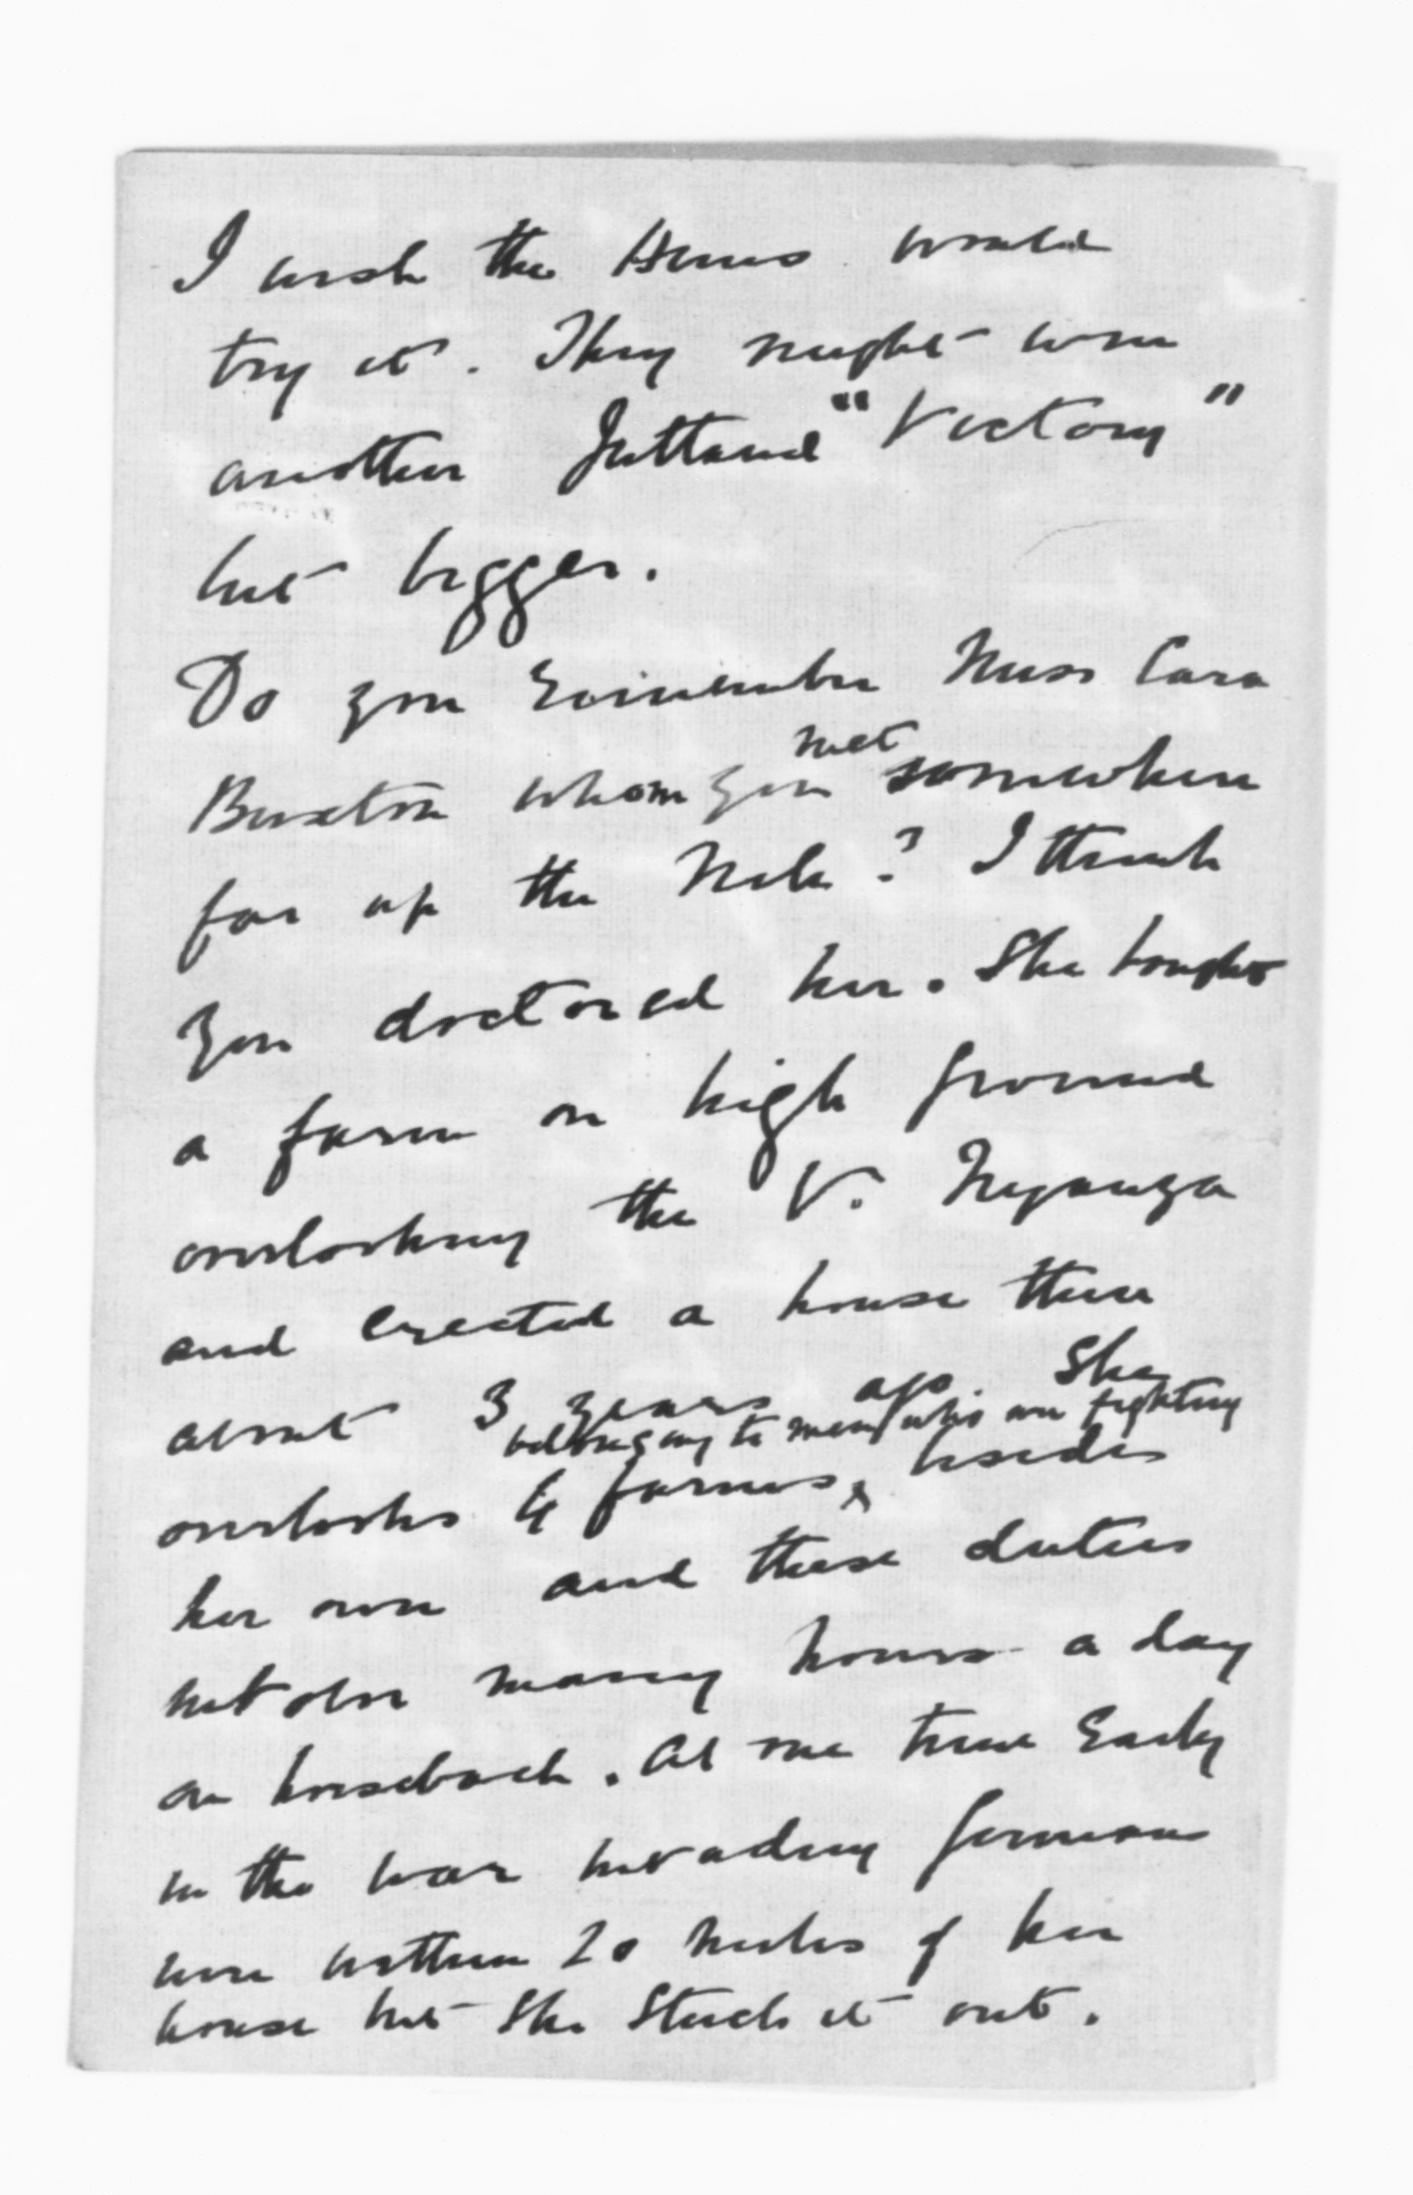 I wish the Huns would
try it. They might win
another Jutland "Victory"
but bigger.
Do you remember Miss Cara
Buxton whom you met somewhere
far up the Nile? I think
you doctored her. She bought
a farm on high ground
overlooking the V. Nyanza
and erected a house there
about 3 years ago. She
belonging to men who are fighting
overlooks 4 farms, besides
her own and these duties
involve many hours a day
on horseback. At one time Early
in the war invading Germans
were within 20 miles of her
house but She Stuck it out.